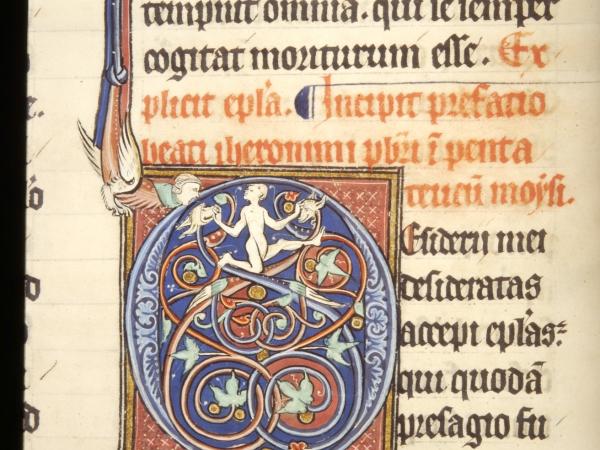 tempnit omnia. qui se semper
cogitat moriturum esse. Ex
plicit epl̃a. Incipit prefatio
beati iheronimi pb̃ri ĩ penta
teucũ moysi.
Esiderii mei
desideratas
accepi epl̃as:
qui quodã
presagio fu